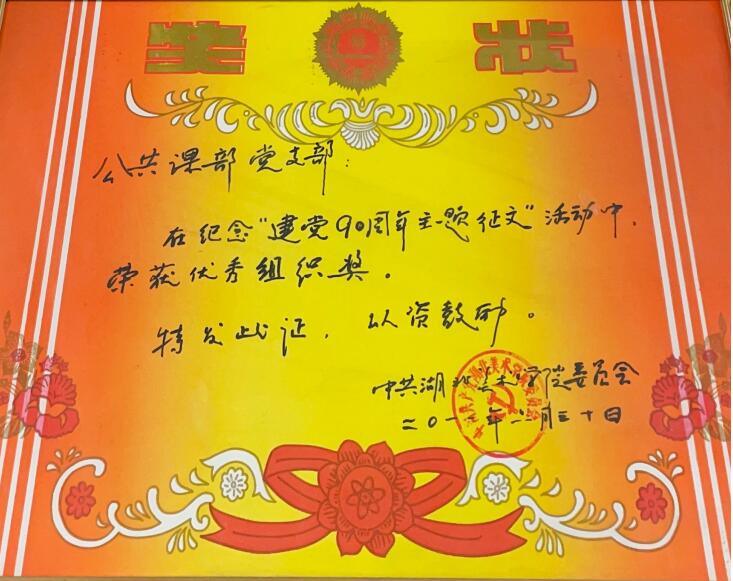 奖 状
公共课部党支部：
在纪念“建党90周年主题征文”活动中，
荣获优秀组织奖。
特发此证，以资鼓励。
中共湖北美术学院委员会
二〇一一年六月三十日